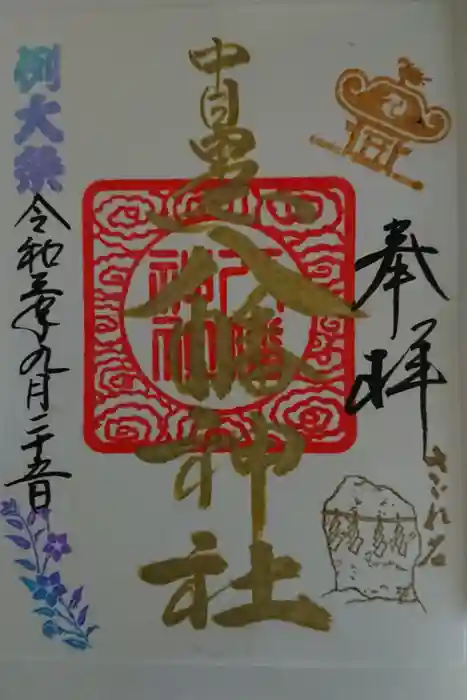 奉拝
さざれ石
中目黒八幡神社
八幡
神社
例大祭
令和三年九月二十五日